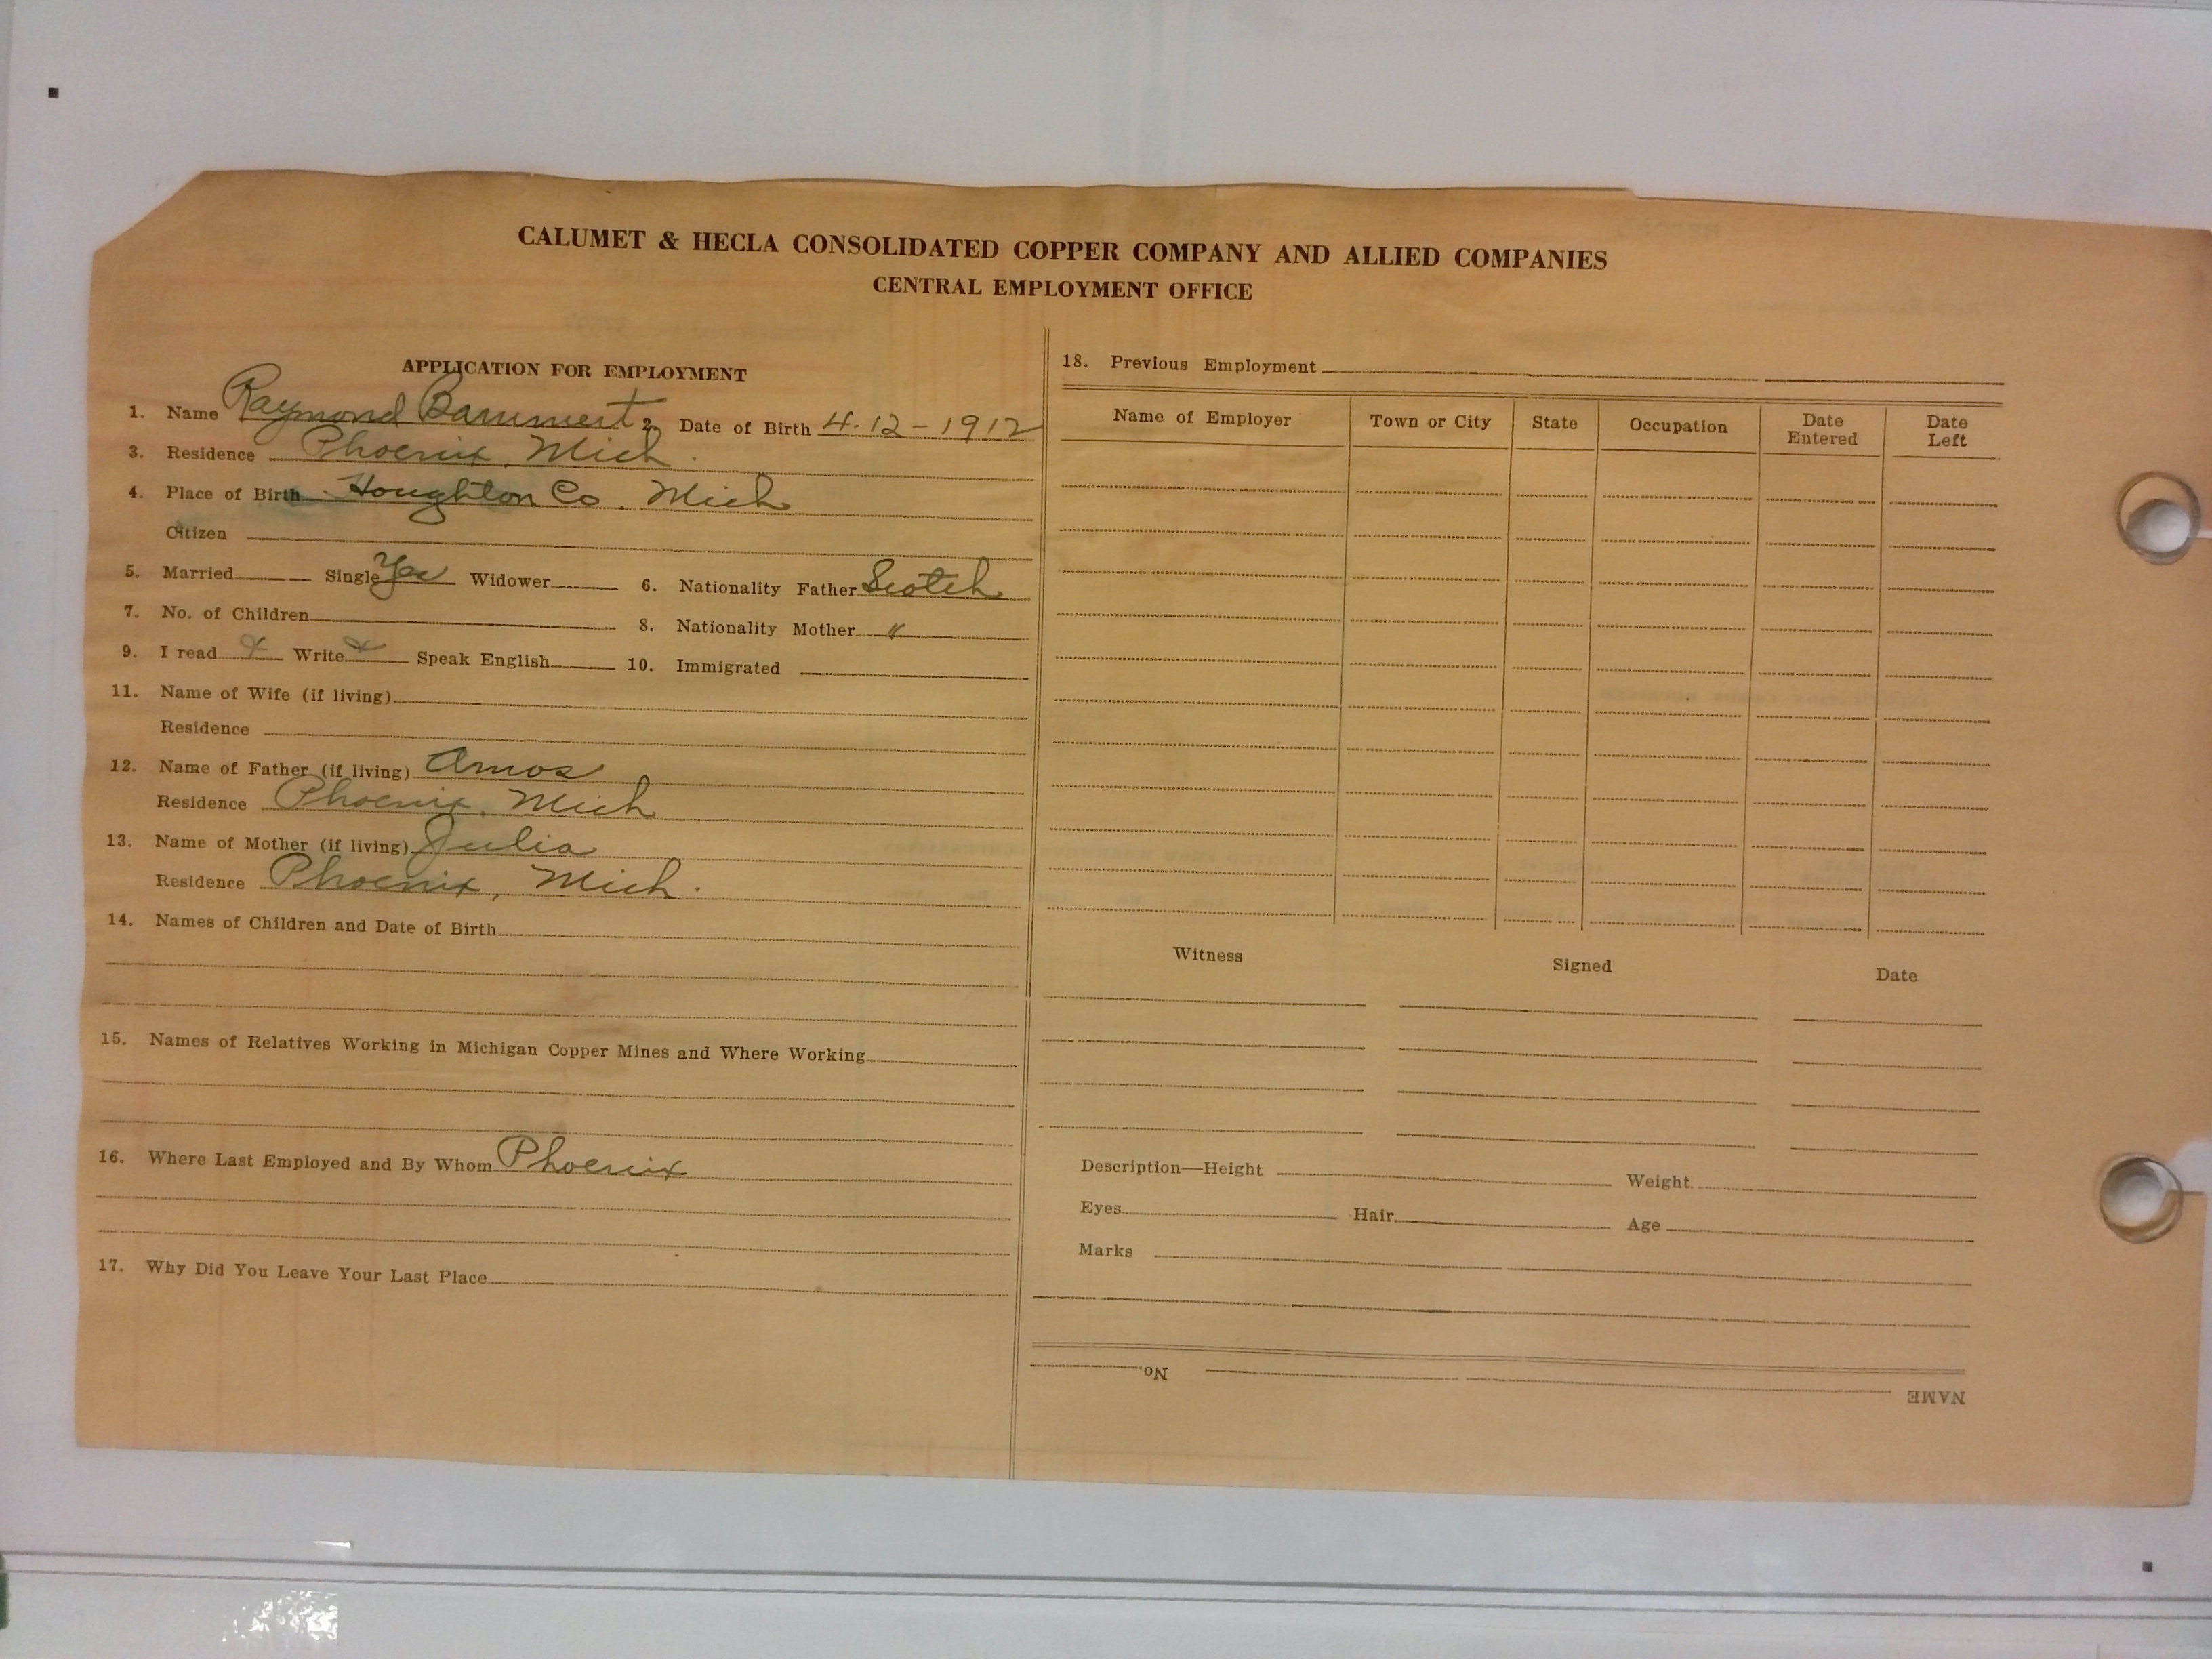 CALUMET & HECLA CONSOLIDATED COPPER COMPANY AND ALLIED COMPANIES
CENTRAL EMPLOYMENT OFFICE
APPLICATION FOR EMPLOYMENT
1. Name Raymond Bammert 2. Date of Birth 4-12-1912
3. Residence Phoenix, Mich.
4. Place of Birth Houghton Co. Mich
Citizen
5. Married Single Yes Widower 6. Nationality Father Scotch
7. No. of Children 8. Nationality Mother "
9. I read x Write x Speak English 10. Immigrated
11. Name of Wife (if living)
Residence
12. Name of Father (if living) Amos
Residence Phoenix, Mich
13. Name of Mother (if living) Julia
Residence Phoenix, Mich.
14. Names of Children and Date of Birth
15. Names of Relatives Working in Michigan Copper Mines and Where Working
16. Where Last Employed and By Whom Phoenix
17. Why Did You Leave Your Last Place
18. Previous Employment
Name of Employer Town or City State Occupation Date Entered Date Left
Witness Signed Date
Description—Height Weight
Eyes Hair Age
Marks
NAME No.